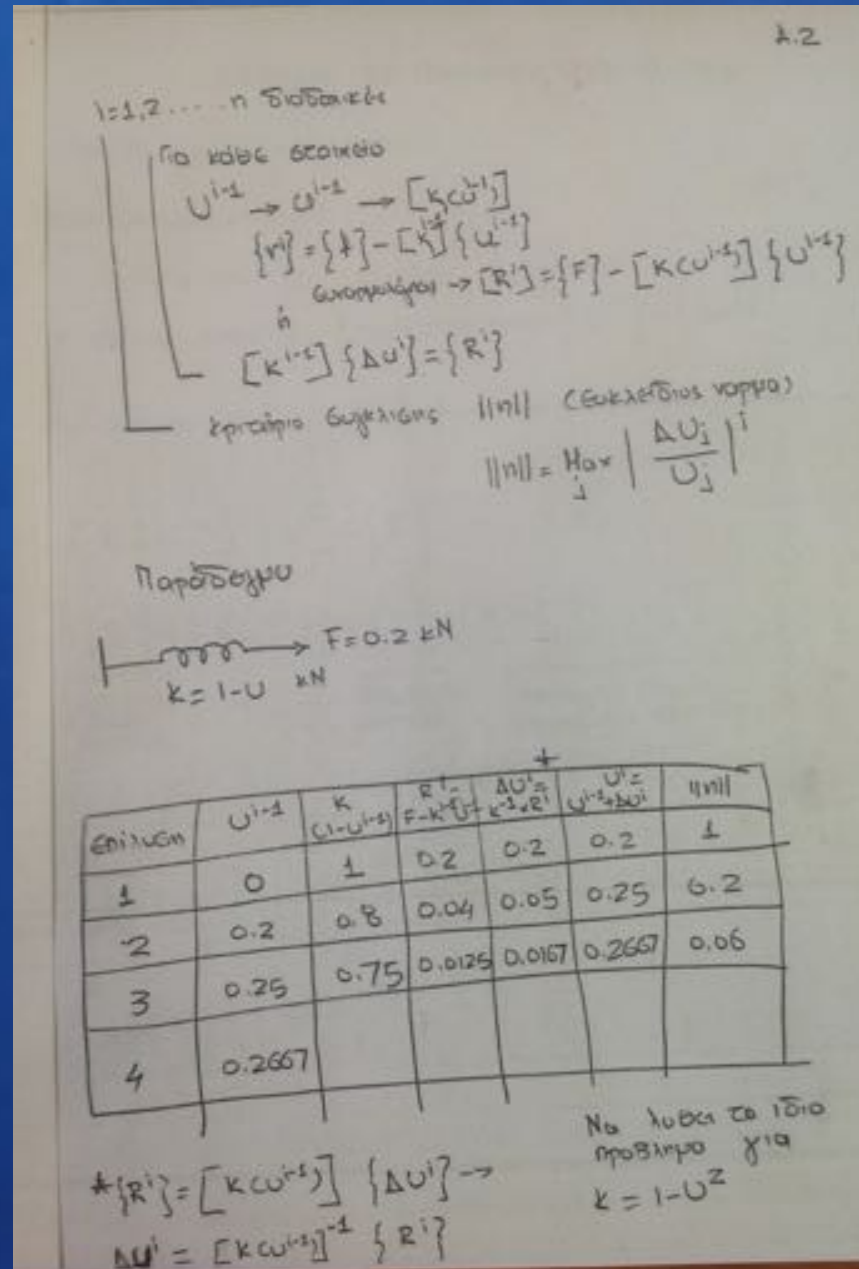 λ.2
i=1,2.....n διαδοχικές
Για κάθε στοιχείο
U^{i-1} → υ^{i-1} → [K(υ^{i-1})]
{r^i} = {f} - [K^{i-1}] {υ^{i-1}}
→ [R^i] = {F} - [K(U^{i-1})] {U^{i-1}}
ή
[K^{i-1}] {ΔU^i} = {R^i}
κριτήριο σύγκλισης ||n|| (Ευκλείδιος νόρμα)
||n|| = Max_j | ΔU_j / U_j |^i
Παράδειγμα
F = 0.2 kN
k = 1-U kN
+
επίλυση | U^{i-1} | K (1-U^{i-1}) | R^i = F-K^{i-1}U^{i-1} | ΔU^i = K^{-1}*R^i | U^i = U^{i-1}+ΔU^i | ||n||
1 | 0 | 1 | 0.2 | 0.2 | 0.2 | 1
2 | 0.2 | 0.8 | 0.04 | 0.05 | 0.25 | 0.2
3 | 0.25 | 0.75 | 0.0125 | 0.0167 | 0.2667 | 0.06
4 | 0.2667
*{R^i} = [K(U^{i-1})] {ΔU^i} →
ΔU^i = [K(U^{i-1})]^{-1} {R^i}
Να λυθεί το ίδιο
πρόβλημα για
k = 1-U^2